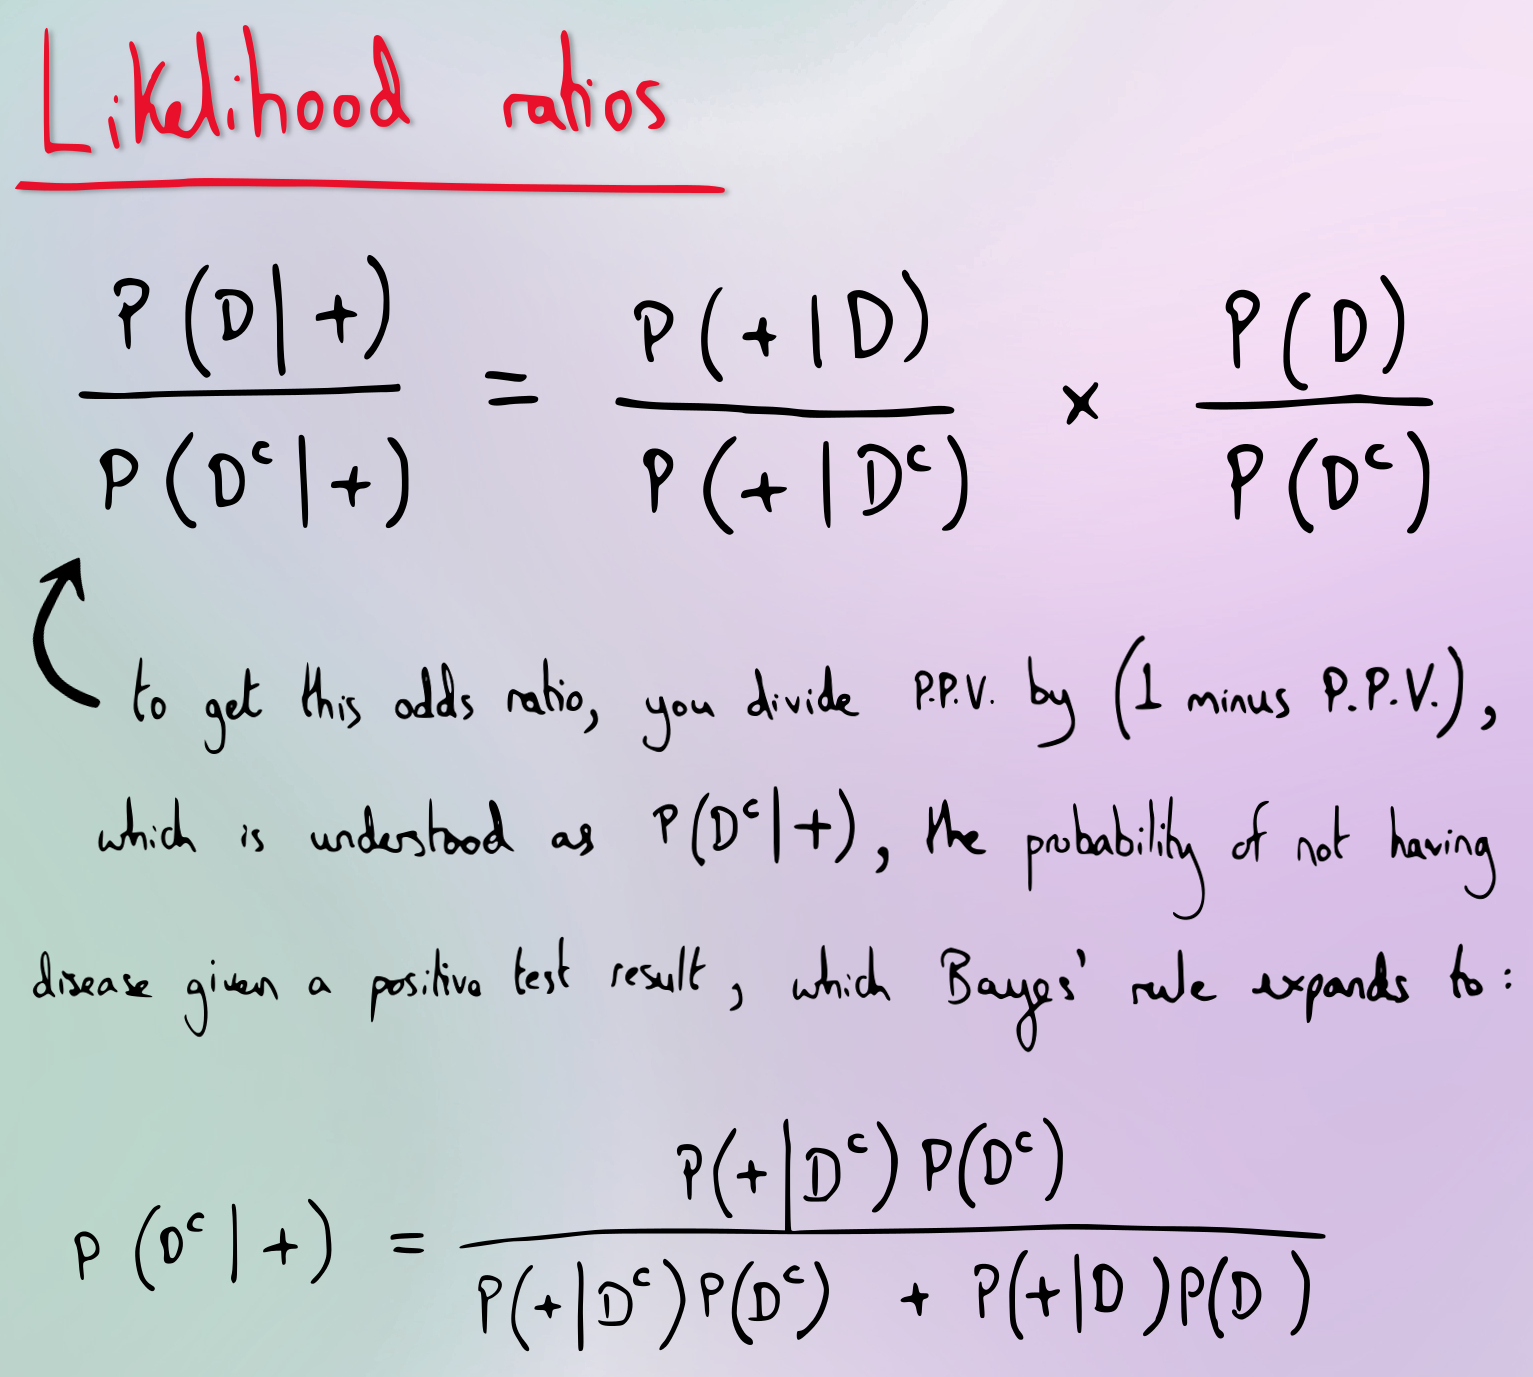 Likelihood ratios
P(D|+) / P(Dᶜ|+) = P(+|D) / P(+|Dᶜ) × P(D) / P(Dᶜ)
to get this odds ratio, you divide P.P.V. by (1 minus P.P.V.),
which is understood as P(Dᶜ|+), the probability of not having
disease given a positive test result, which Bayes' rule expands to:
P(Dᶜ|+) = P(+|Dᶜ)P(Dᶜ) / P(+|Dᶜ)P(Dᶜ) + P(+|D)P(D)